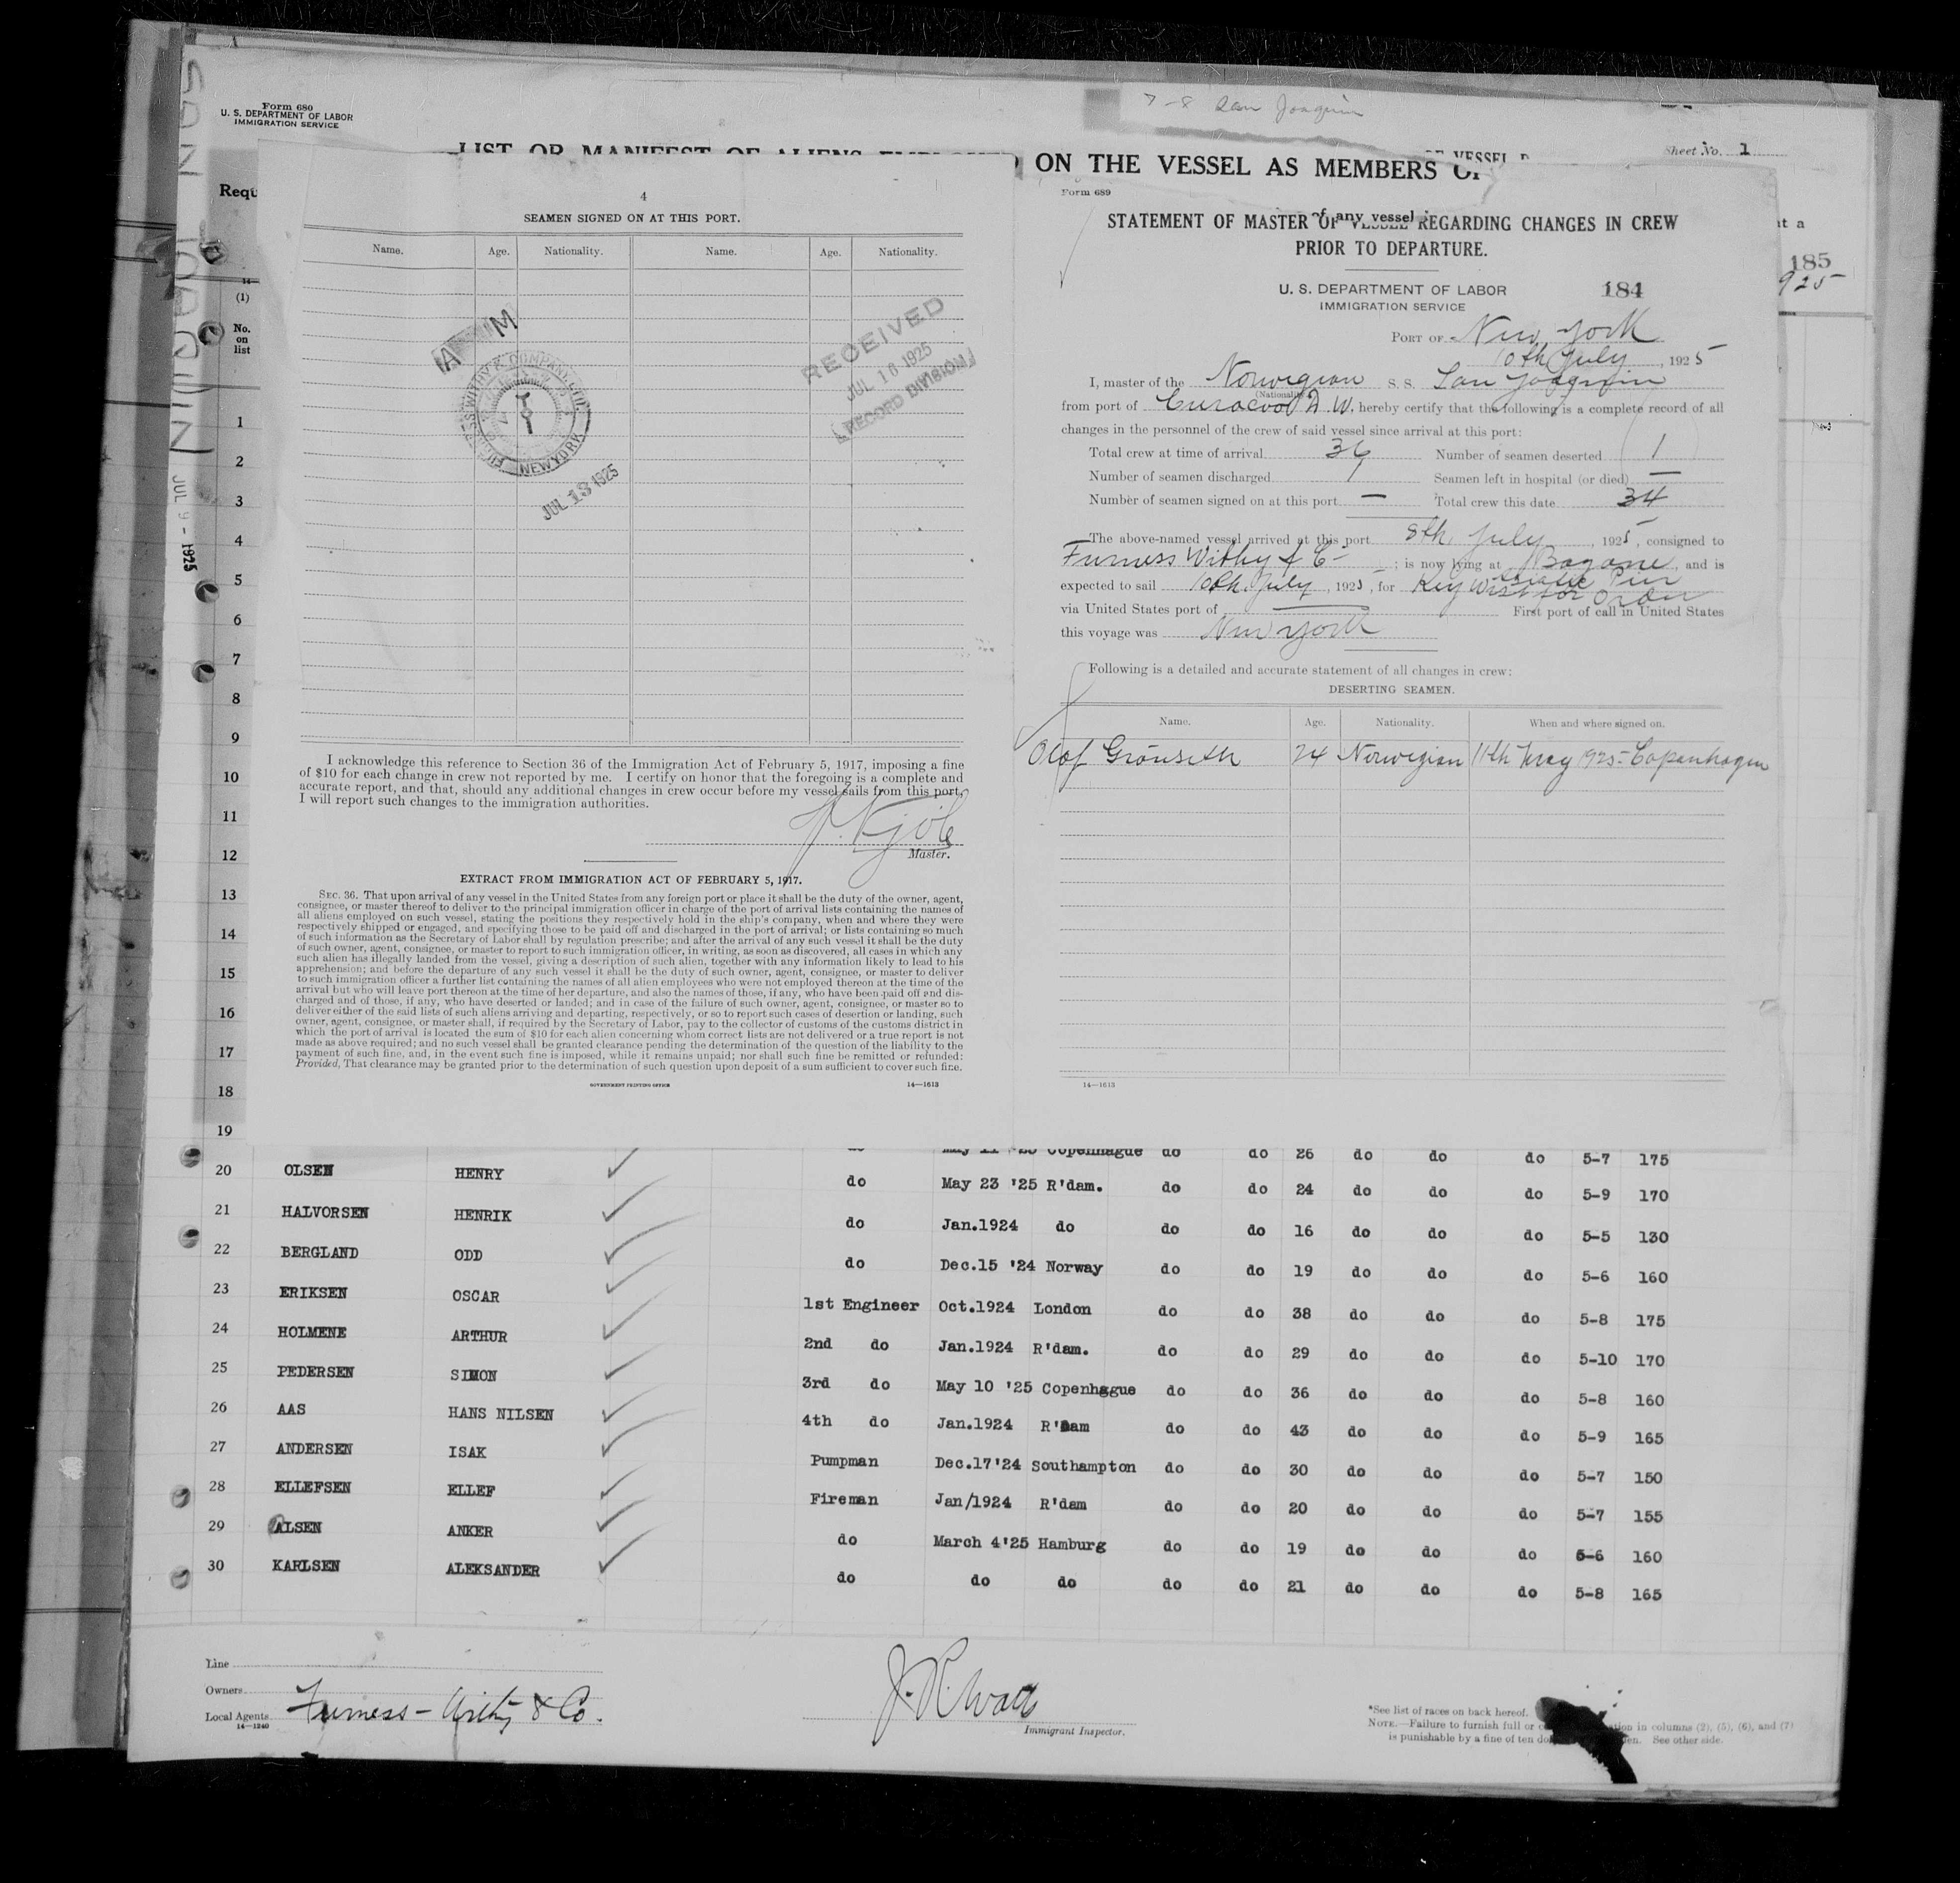 SAN JOAQUIN
JUL 9 - 1925
7-8 San Joaquin
Form 680
U. S. DEPARTMENT OF LABOR
IMMIGRATION SERVICE
LIST OR MANIFEST OF ALIENS
ON THE VESSEL AS MEMBERS OF
Sheet No. 1
of any vessel
185
925
(1)
No.
on
list
4
SEAMEN SIGNED ON AT THIS PORT.
Name. Age. Nationality. Name. Age. Nationality.
RECEIVED
JUL 16 1925
RECORD DIVISION
NEW YORK
JUL 13 1925
I acknowledge this reference to Section 36 of the Immigration Act of February 5, 1917, imposing a fine
of $10 for each change in crew not reported by me. I certify on honor that the foregoing is a complete and
accurate report, and that, should any additional changes in crew occur before my vessel sails from this port,
I will report such changes to the immigration authorities.
Master.
EXTRACT FROM IMMIGRATION ACT OF FEBRUARY 5, 1917.
SEC. 36. That upon arrival of any vessel in the United States from any foreign port or place it shall be the duty of the owner, agent,
consignee, or master thereof to deliver to the principal immigration officer in charge of the port of arrival lists containing the names of
all aliens employed on such vessel, stating the positions they respectively hold in the ship's company, when and where they were
respectively shipped or engaged, and specifying those to be paid off and discharged in the port of arrival; or lists containing so much
of such information as the Secretary of Labor shall by regulation prescribe; and after the arrival of any such vessel it shall be the duty
of such owner, agent, consignee, or master to report to such immigration officer, in writing, as soon as discovered, all cases in which any
such alien has illegally landed from the vessel, giving a description of such alien, together with any information likely to lead to his
apprehension; and before the departure of any such vessel it shall be the duty of such owner, agent, consignee, or master to deliver
to such immigration officer a further list containing the names of all alien employees who were not employed thereon at the time of the
arrival but who will leave port thereon at the time of her departure, and also the names of those, if any, who have been paid off and dis-
charged and of those, if any, who have deserted or landed; and in case of the failure of such owner, agent, consignee, or master so to
deliver either of the said lists of such aliens arriving and departing, respectively, or so to report such cases of desertion or landing, such
owner, agent, consignee, or master shall, if required by the Secretary of Labor, pay to the collector of customs of the customs district in
which the port of arrival is located the sum of $10 for each alien concerning whom correct lists are not delivered or a true report is not
made as above required; and no such vessel shall be granted clearance pending the determination of the question of the liability to the
payment of such fine, and, in the event such fine is imposed, while it remains unpaid; nor shall such fine be remitted or refunded:
Provided, That clearance may be granted prior to the determination of such question upon deposit of a sum sufficient to cover such fine.
GOVERNMENT PRINTING OFFICE 14—1613
Form 689
STATEMENT OF MASTER OF VESSEL REGARDING CHANGES IN CREW
PRIOR TO DEPARTURE.
U. S. DEPARTMENT OF LABOR
IMMIGRATION SERVICE
184
PORT OF New York
10th July, 1925
I, master of the Norwegian S. S. San Joaquin
(Nationality)
from port of Curacao D.W., hereby certify that the following is a complete record of all
changes in the personnel of the crew of said vessel since arrival at this port:
Total crew at time of arrival 36 Number of seamen deserted 1
Number of seamen discharged 1 Seamen left in hospital (or died) —
Number of seamen signed on at this port — Total crew this date 34
The above-named vessel arrived at this port 8th July, 1925, consigned to
Furness Withy & Co; is now lying at Bayonne, and is
expected to sail 10th July, 1925, for Key West for
via United States port of — First port of call in United States
this voyage was New York
Following is a detailed and accurate statement of all changes in crew:
DESERTING SEAMEN.
Name. Age. Nationality. When and where signed on.
Olaf Grönseth 24 Norwegian 11th May 1925 - Copenhagen
14—1613
1
2
3
4
5
6
7
8
9
10
11
12
13
14
15
16
17
18
19
do do 26 do do do 5-7 175
20 OLSEN HENRY do May 23 '25 R'dam. do do 24 do do do 5-9 170
21 HALVORSEN HENRIK do Jan.1924 do do do 16 do do do 5-5 130
22 BERGLAND ODD do Dec.15 '24 Norway do do 19 do do do 5-6 160
23 ERIKSEN OSCAR 1st Engineer Oct.1924 London do do 38 do do do 5-8 175
24 HOLMENE ARTHUR 2nd do Jan.1924 R'dam. do do 29 do do do 5-10 170
25 PEDERSEN SIMON 3rd do May 10 '25 Copenhague do do 36 do do do 5-8 160
26 AAS HANS NILSEN 4th do Jan.1924 R'dam do do 43 do do do 5-9 165
27 ANDERSEN ISAK Pumpman Dec.17'24 Southampton do do 30 do do do 5-7 150
28 ELLEFSEN ELLEF Fireman Jan/1924 R'dam do do 20 do do do 5-7 155
29 ALSEN ANKER do March 4'25 Hamburg do do 19 do do do 5-6 160
30 KARLSEN ALEKSANDER do do do do do 21 do do do 5-8 165
Line
Owners
Local Agents Furness-Withy & Co.
14—1240
Immigrant Inspector.
*See list of races on back hereof.
NOTE.—Failure to furnish full or in columns (2), (5), (6), and (7)
is punishable by a fine of ten See other side.